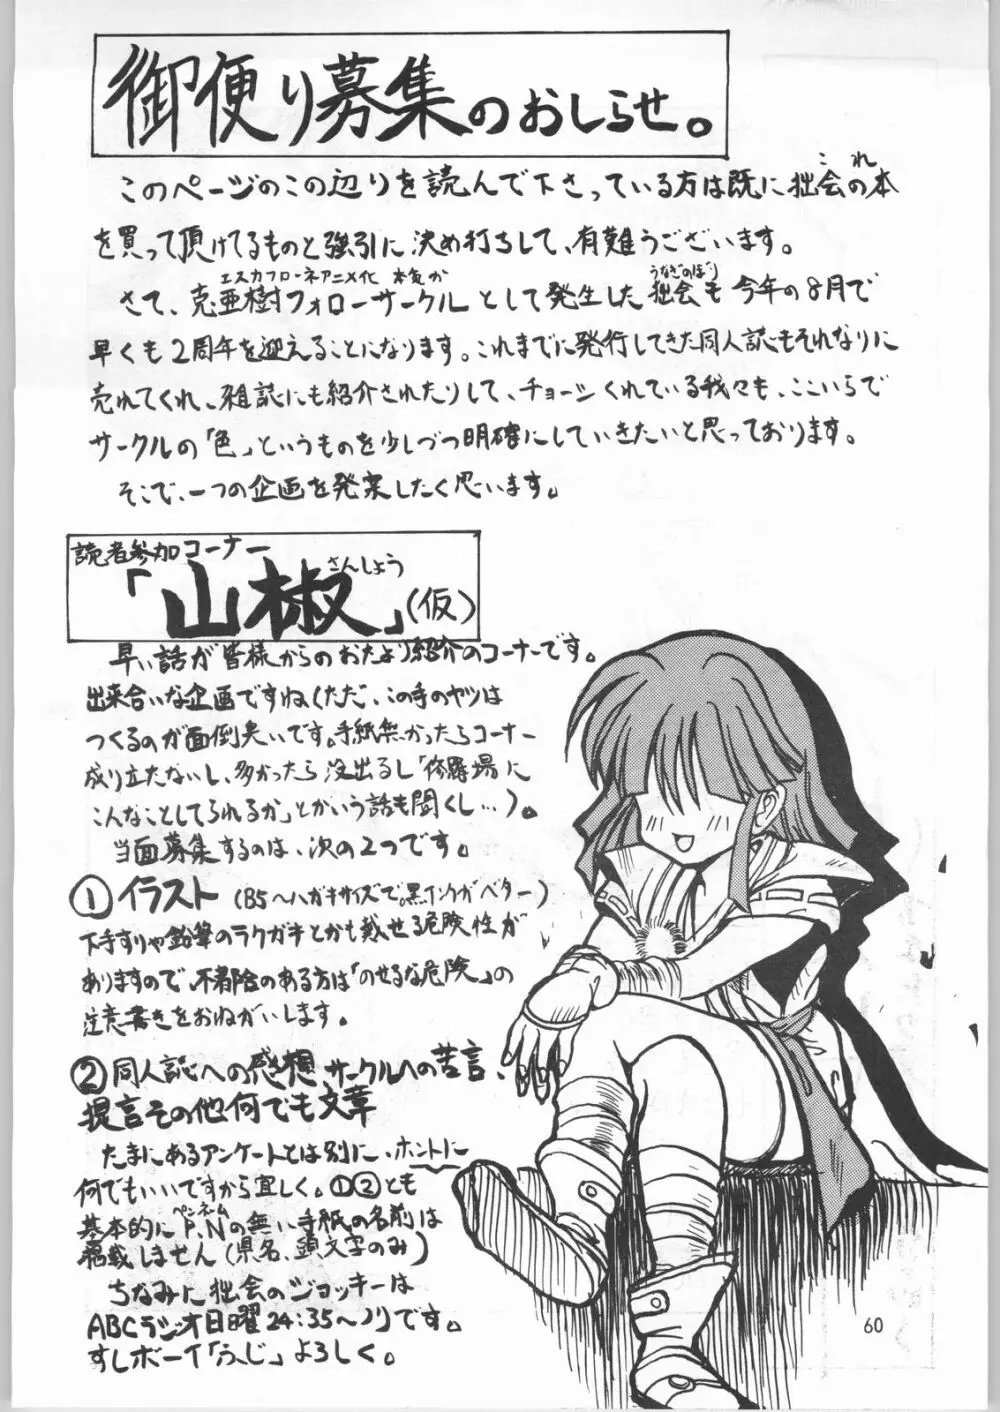 御便り募集のおしらせ。
このページのこの辺りを読んで下さっている方は既に拙会の本
これ
を買って頂けてるものと強引に決め打ちして、有難うございます。
エスカフローネアニメ化
うなぎのぼり
さて、克亜樹フォローサークルとして発生した拙会も今年の8月で
早くも2周年を迎えることになります。これまでに発行してきた同人誌もそれなりに
売れてくれ、雑誌にも紹介されたりして、チョーシくれている我々も、ここいらで
サークルの「色」というものを少しづつ明確にしていきたいと思っております。
そこで、一つの企画を発案したく思います。
読者参加コーナー
さんしょう
「山椒」(仮)
早い話が皆様からのおたより紹介のコーナーです。
出来合いな企画ですね(ただ、この手のヤツは
つくるのが面倒臭いです。手紙無かったらコーナー
成り立たないし、多かったら没出るし「修羅場に
こんなことしてられるか」とかいう話も聞くし…)。
当面募集するのは、次の2つです。
①イラスト(B5〜ハガキサイズで。黒インクがベター)
下手すりゃ鉛筆のラクガキとかも載せる危険性が
ありますので、不都合のある方は「のせるな危険」の
注意書きをおねがいします。
②同人誌への感想、サークルへの苦言、
提言その他何でも文章
たまにあるアンケートとは別に、ホントに
何でもいいですから宜しく。①②とも
ペンネーム
基本的にP.Nの無い手紙の名前は
掲載しません(県名、頭文字のみ)
ちなみに拙会のジョッキーは
ABCラジオ日曜24:35〜ノリです。
すしボーイ「ふじ」よろしく。
60